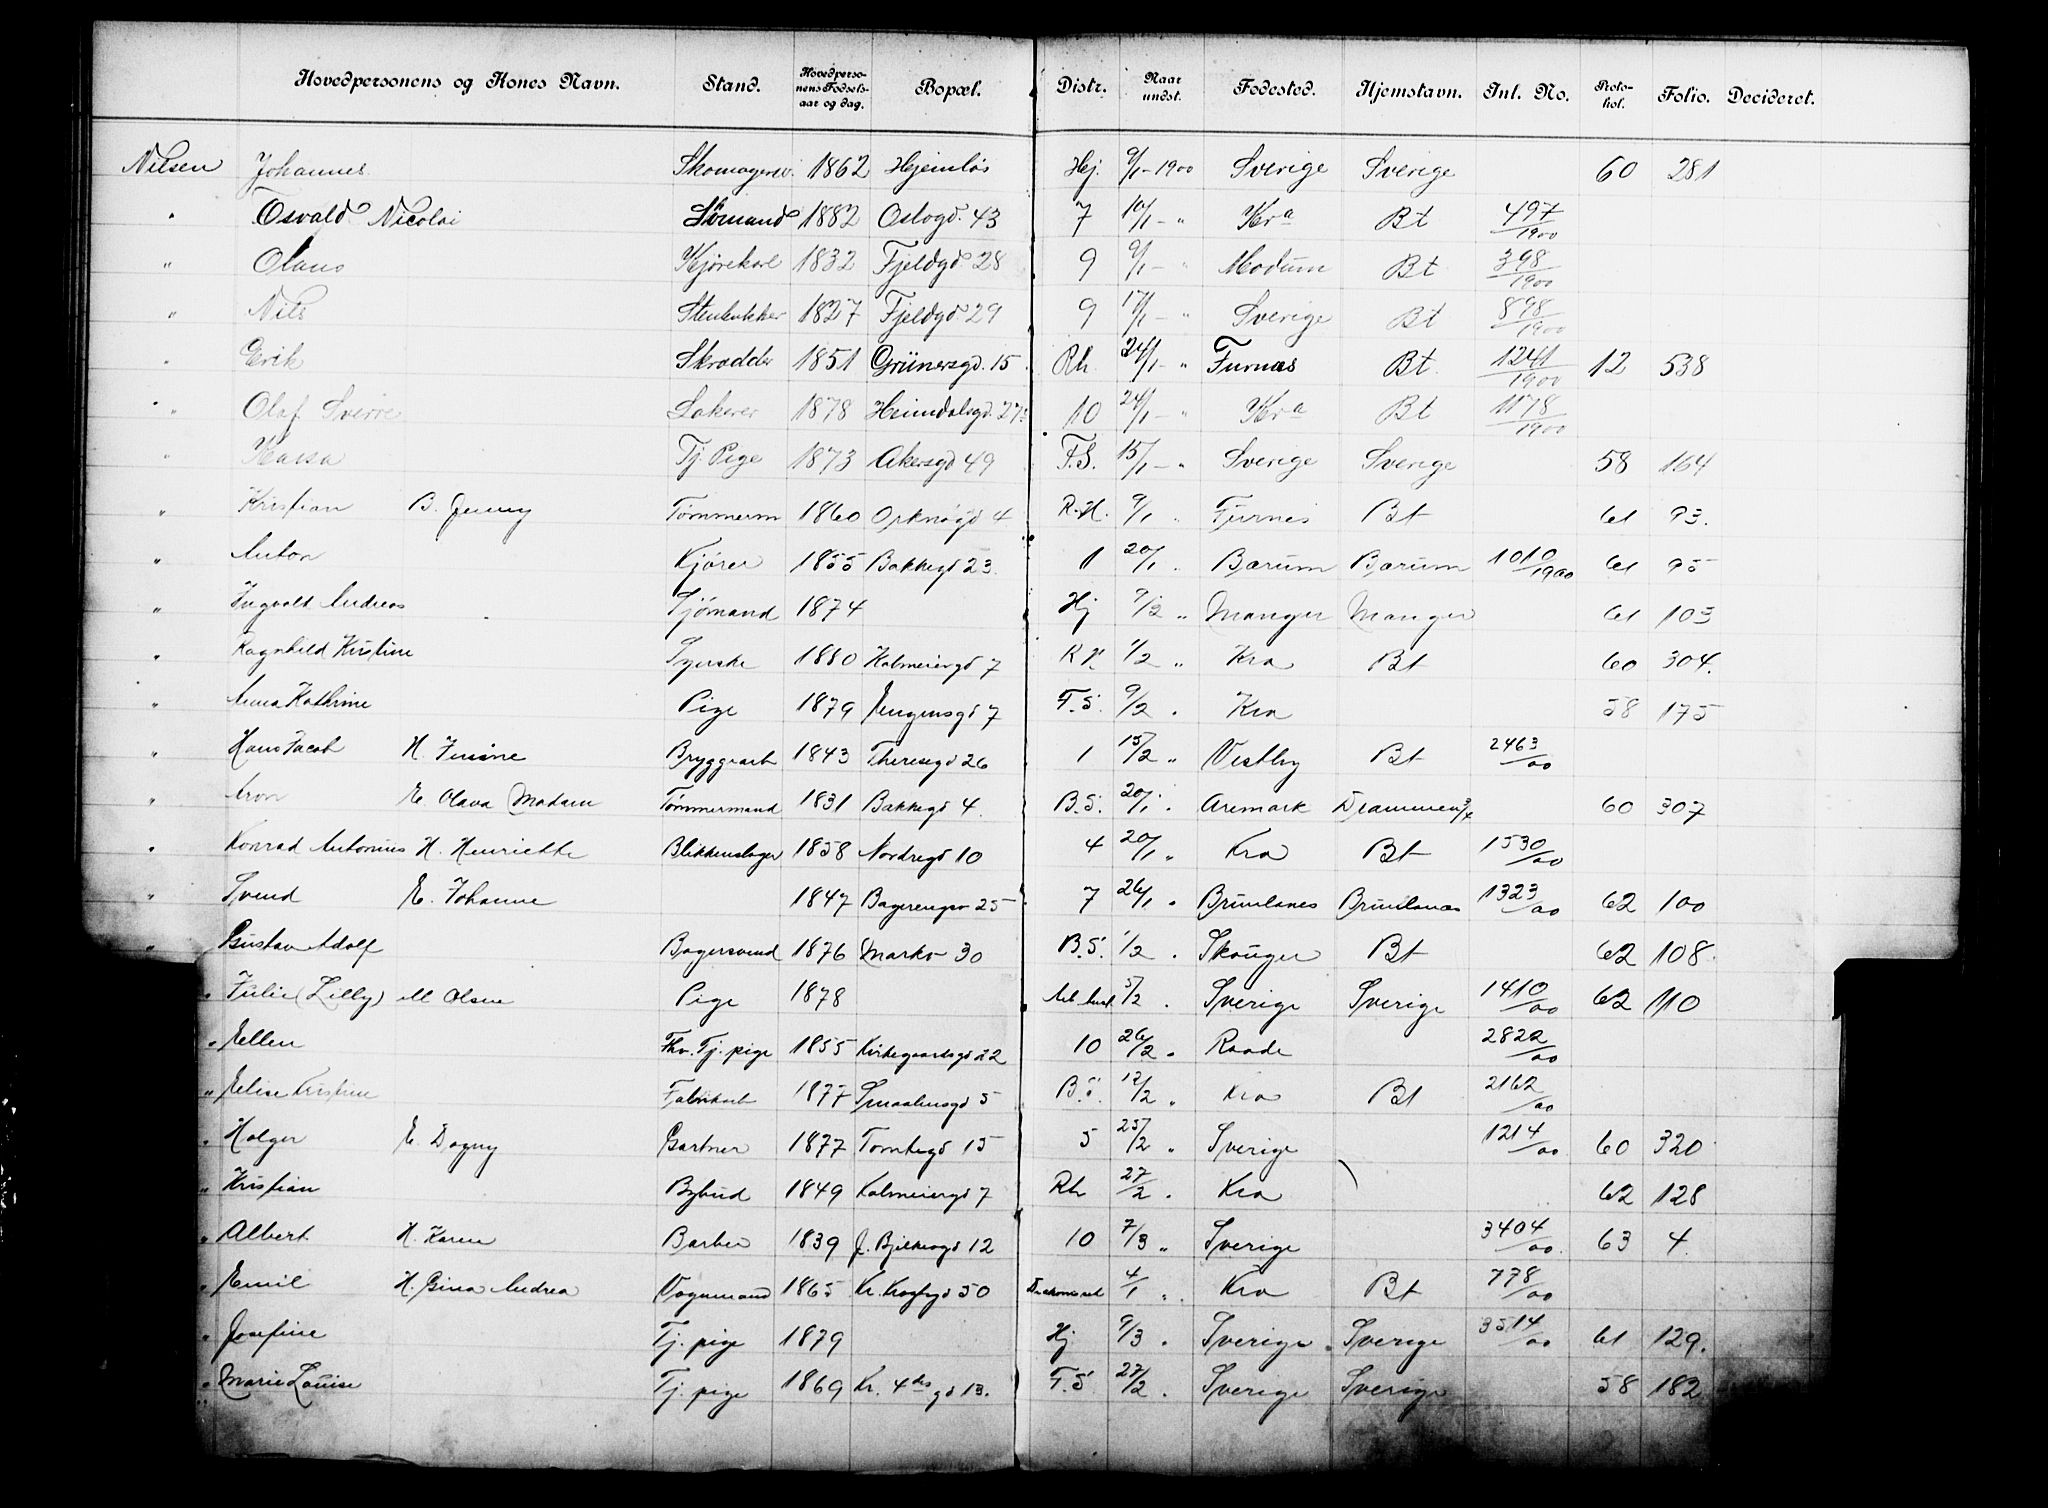 Hovedpersonens og Kones Navn. Stand. Hovedpersonens Fødselsaar og dag. Bopæl. Distr. Naar undst. Fødested. Hjemstavn. Int. No. Protokol. Folio. Decideret.
Nilsen Johannes Skomagersv. 1862 Hjemløs Hj. 9/1-1900 Sverige Sverige 60 281
" Osvald Nicolai Sømand 1882 Oslogd. 43 7 10/1- " Kra Bt 497/1900
" Olaus Kjørekarl 1832 Fjeldgd. 28 9 9/1- " Modum Bt 398/1900
" Nils Stenhukker 1827 Fjeldgd. 29 9 17/1- " Sverige Bt 898/1900
" Erik Skrædder 1851 Grünersgd. 15 Rh. 24/1- " Furnæs Bt. 1241/1900 12 538
" Olaf Sverre Lakerer 1878 Heimdalsgd. 27 10 24/1- " Kra Bt 1178/1900
" Tj. Pige 1873 Akersgd 49 F.S. 15/1- " Sverige Sverige 58 164
" Kristian B. Jenny Tømmerm 1860 Orknøgd 4 R.H. 9/1 " Furnes Bt 61 93.
" Anton Kjører 1855 Bakkegd 23. 1 20/1 " Bærum Bærum 1010/1900 61 95
" Ingvald Andreas Sjømand 1874 Hj 9/2 " Manger Manger 61 103
" Ragnhild Kristine Syerske 1880 Kalmeiergd 7 RH 1/2 " Kra Bt 60 304.
" Anna Kathrine Pige 1879 Jengensgd 7 F.S. 9/2 " Kra 58 175
" Hans Jacob H. Jensine Bryggearb 1843 Theresegd 26 1 15/2 " Vestby Bt 2463/00
" Aron E. Olava Madam Tømmermand 1831 Bakkegd 4. B.S. 20/1 " Aremark Drammen 60 307
" Konrad Antonius H. Henriette Blikkenslager 1858 Nordregd 10 4 20/1 " Kra Bt 1530/00
" Svend E. Johanne 1847 Bagerengv 25 7 26/1 " Brunlanes Brunlanæs 1323/00 62 100
" Gustav Adolf Bagersvend 1876 Markv 30 B.S. 1/2 " Skouger Bt 62 108.
" Julie (Lilly) M Olsen Pige 1878 5/2 " Sverige Sverige 1410/00 62 110
" Ellen Fhv. Tj. pige 1855 Kirkegaardsgd 22 10 26/2 " Raade 2822/00
" Elise Kristine Fabrikarb 1877 Smaalensgd 5 B.S. 12/2 " Kra Bt 2162/00
" Holger E. Dagny Gartner 1877 Tomtegd 15 5 25/2 " Sverige 1214/00 60 320
" Kristian Bybud 1849 Kalmeiergd 7 Rh 27/2 " Kra 62 128
" Albert H. Karen Barber 1839 J. Bjelkesgd 12 10 7/3 " Sverige 3404/00 63 4.
" Emil H. Gina Andrea Vognmand 1865 Kr. Kroghgd 50 4/1 " Kra Bt 778/00
" Josefine Tj. pige 1879 Hj 9/3 " Sverige Sverige 3514/00 61 129.
" Marie Louise Tj. pige 1869 Kr. 4des gd 13. F.S 27/2 " Sverige Sverige 58 182